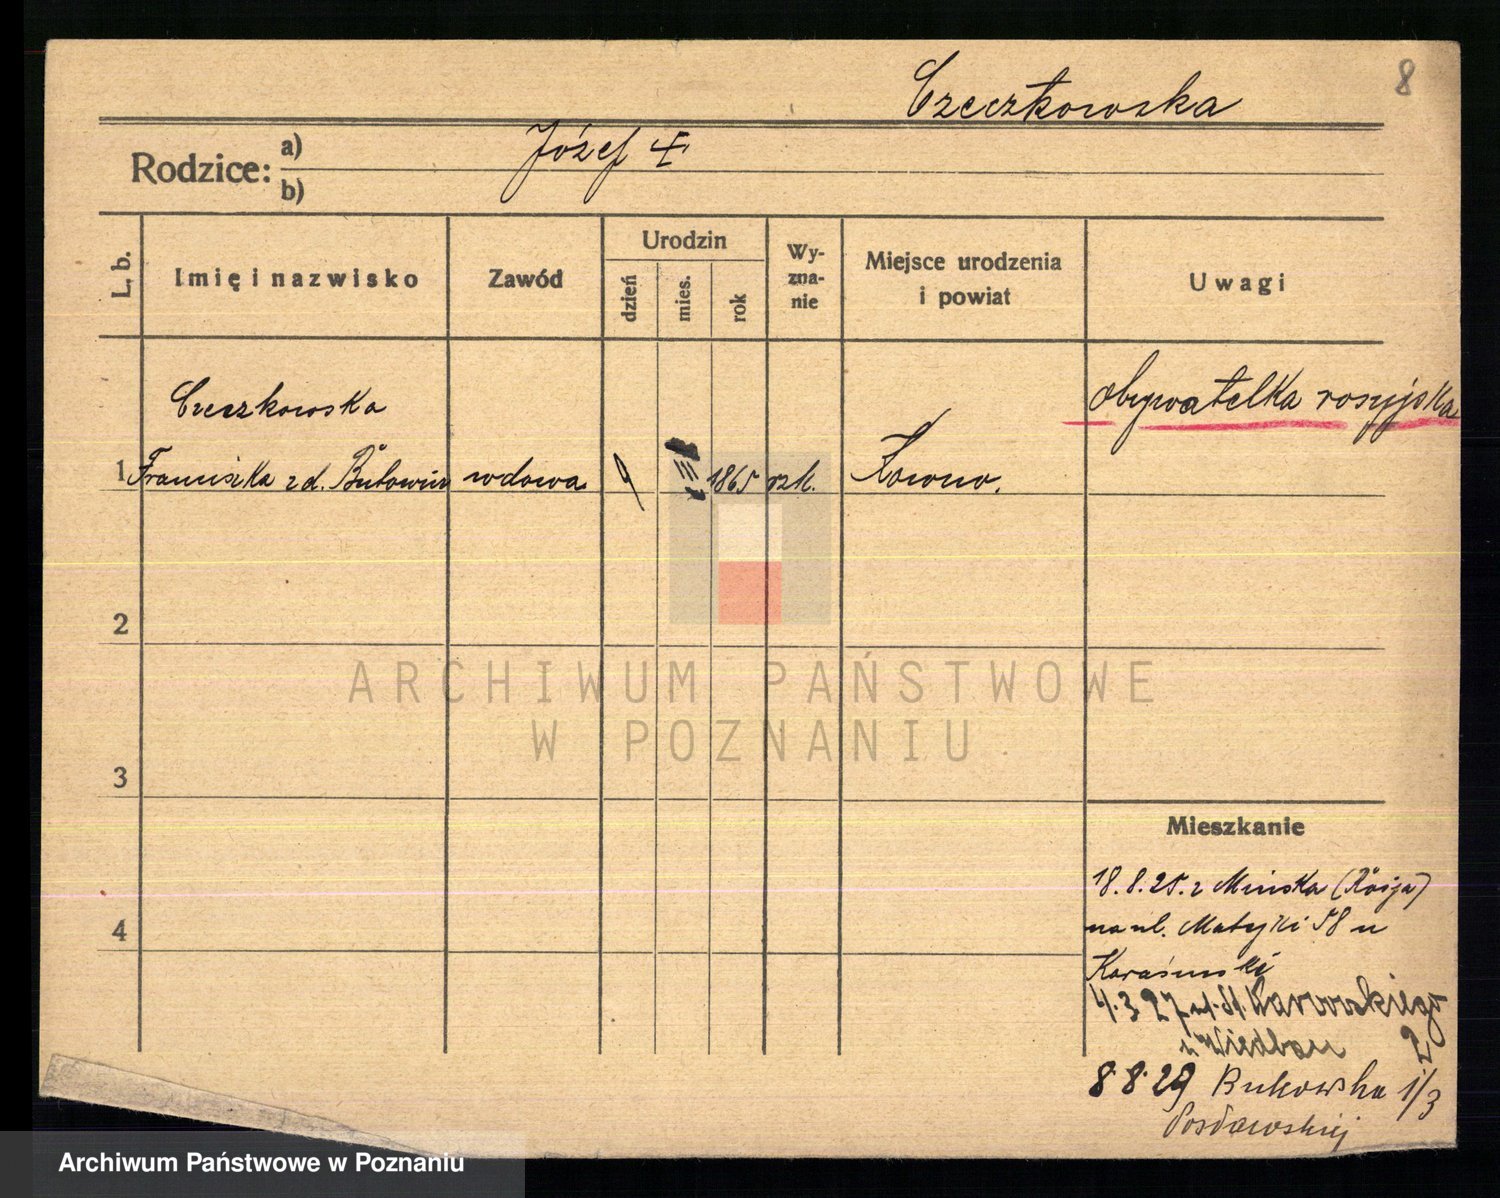 8
Czeczkowska
Rodzice: a) Józef †
b)
L. b. Imię i nazwisko Zawód Urodzin dzień mies. rok Wyznanie Miejsce urodzenia i powiat Uwagi
obywatelka rosyjska
Czeczkowska
1 Franciszka z d. wdowa 9 III 1865 rzk. Kowno.
2
ARCHIWUM PAŃSTWOWE
W POZNANIU
3
Mieszkanie
18.8.25. z Mińska (Rosja)
4
na ul. Matejki 58 u
4.3.27 ul. St.
u 2
8.8.29 Bukowska 1/3
Archiwum Państwowe w Poznaniu